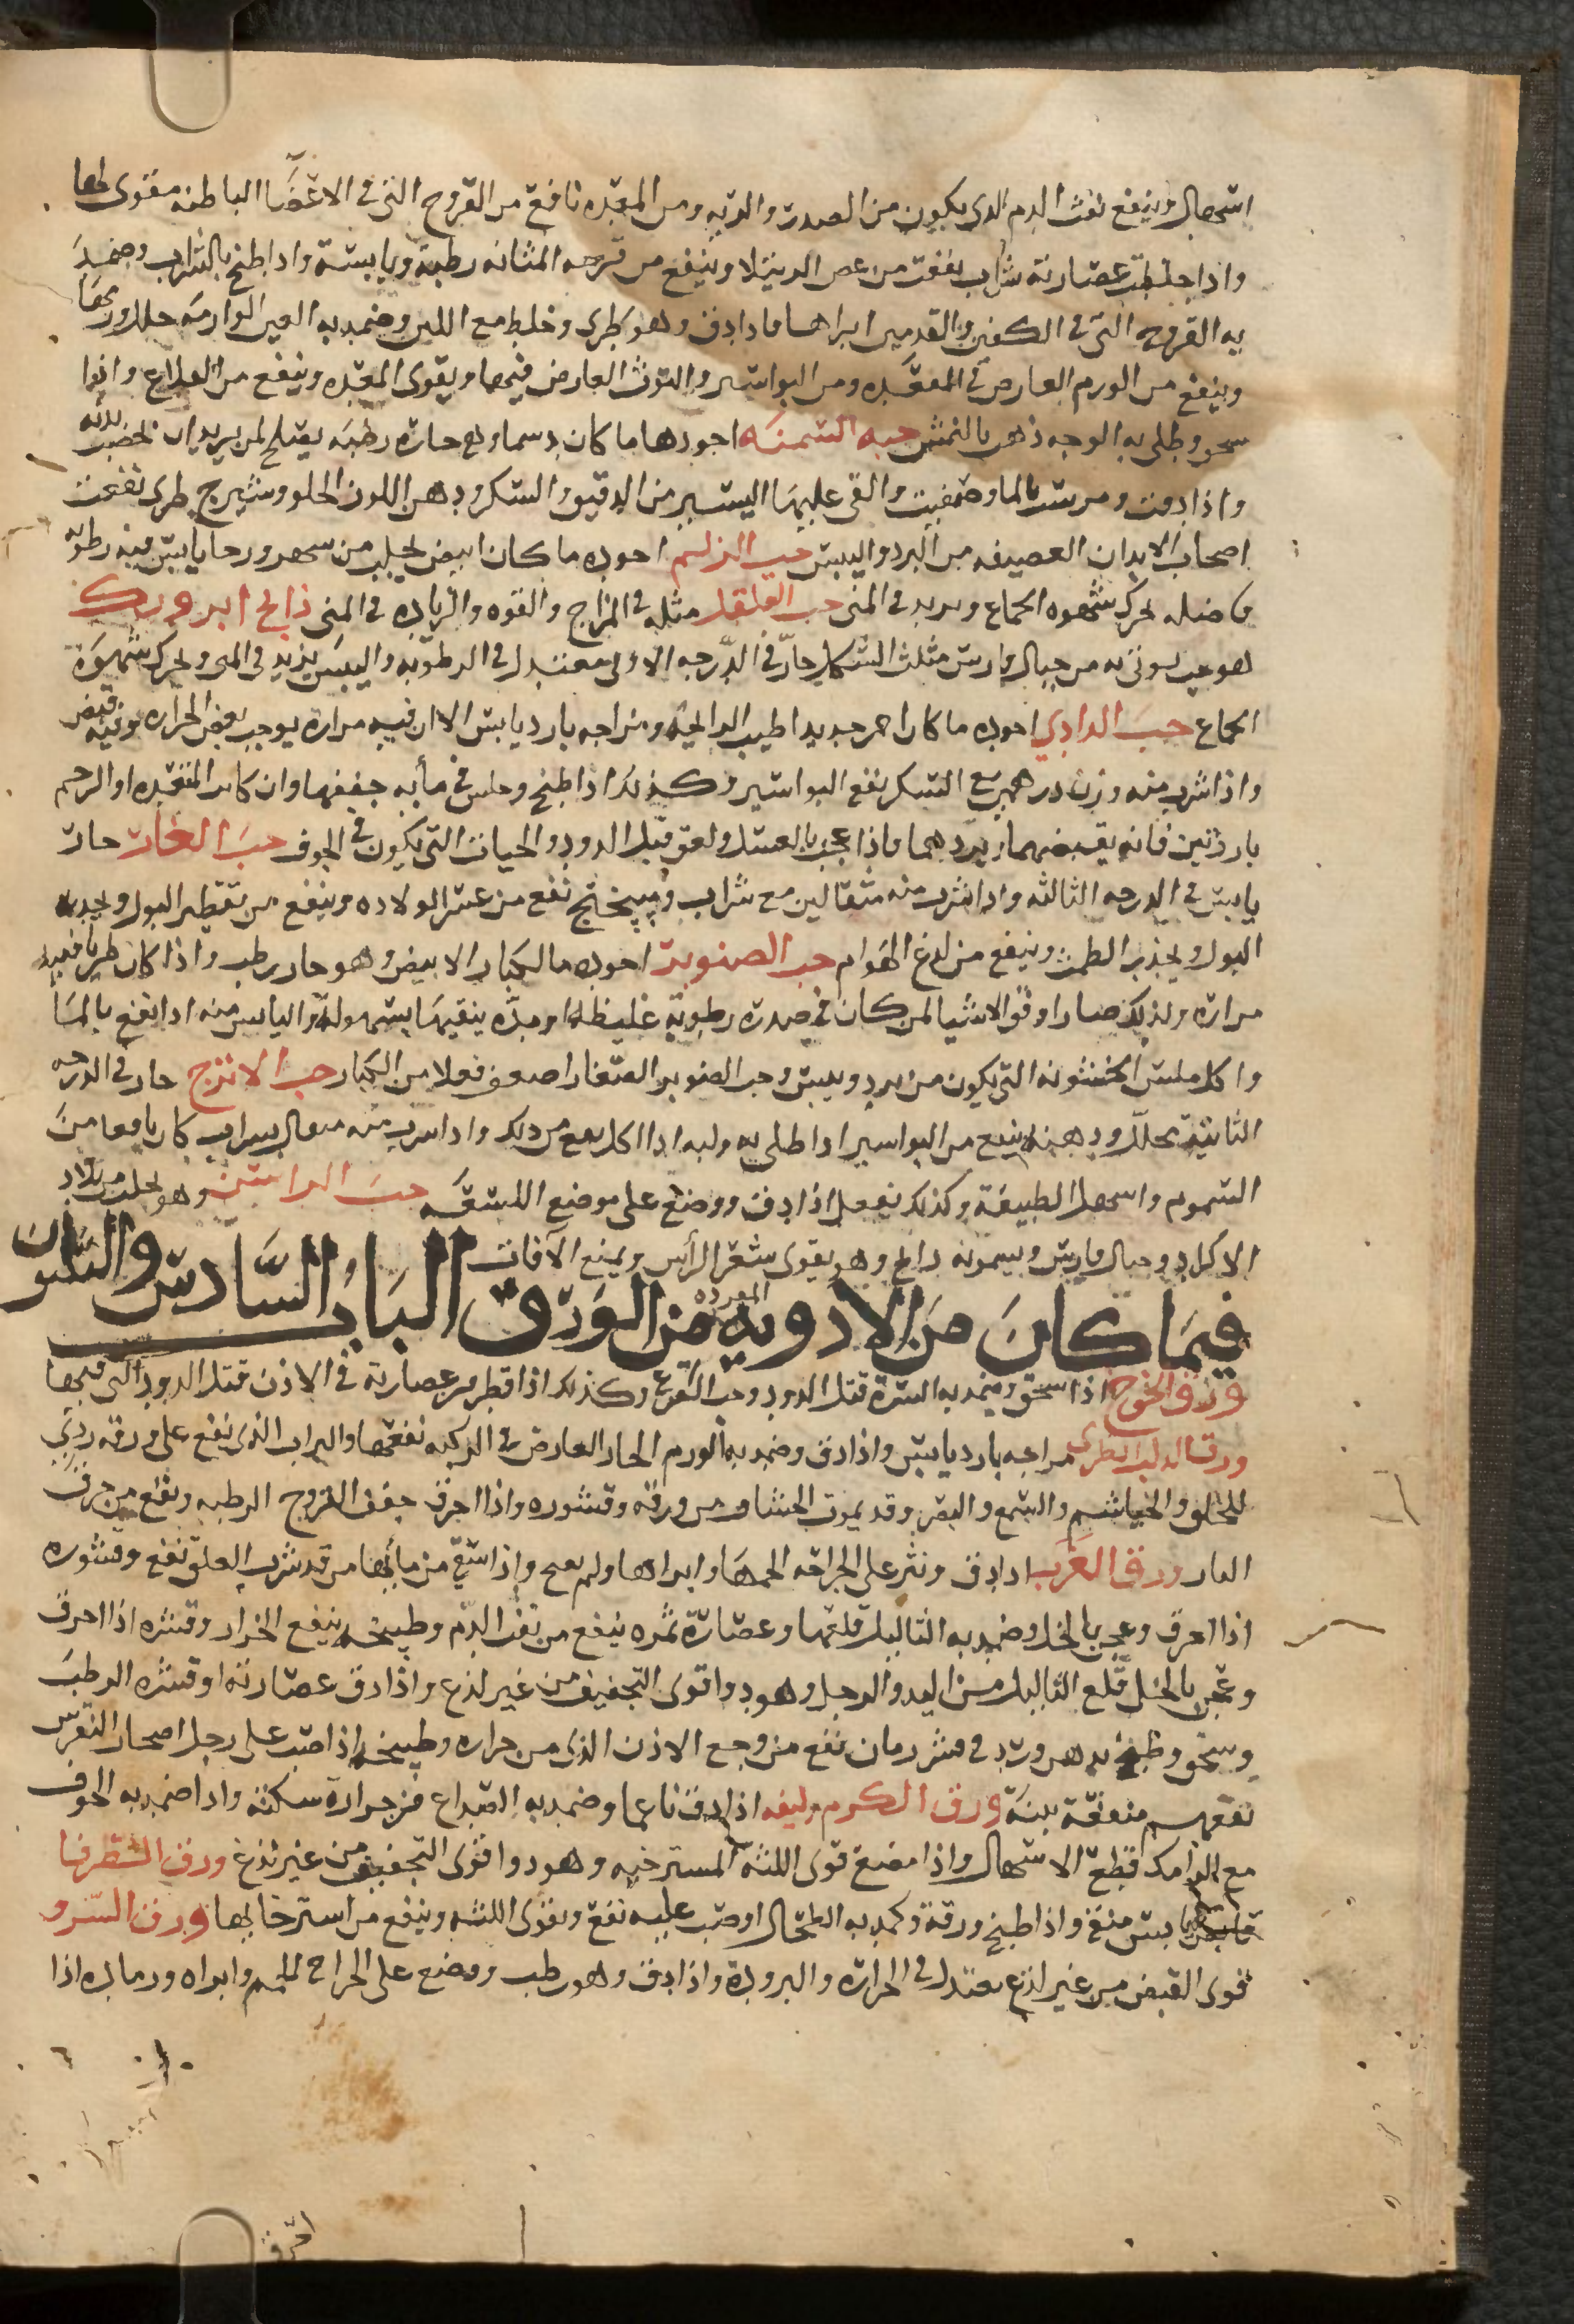 اسهال وينفع نفث الدم الذي يكون من الصدر والريه ومن المعده نافع من القروح التي في الاعضا الباطنه مقوى لها
واذا خلطت عصارته بشراب نفعت من عض الرتيلا وينفع من قرحه المثانه رطبة ويابسة واذا طبخ بالشراب وضمد
به القروح التي في الكفين والقدمين ابراها فاذا دق وهو طرى وخلط مع اللبن وضمد به العين الوارمه حلل ورمها
وينفع من الورم العارض في المقعده ومن البواسير والتوث العارض فيها ويقوى المعده وينفع من الصداع واذا
سحق وطلى به الوجه ذهب بالنمش حبه السمنه اجودها ما كان دسما وهى حاره رطبه يصلح لمن يريد ان يخصب بدنه
واذا دقت ومرست بالما وصفيت والقى عليها اليسير من الدقيق والسكر ودهن اللوز الحلو وشيرج طرى نفعت
اصحاب الابدان الضعيفه من البرد واليبس حب الزلم اجوده ما كان ابيض يجلب من شهرزور حار يابس فيه رطوبه
فاضله يحرك شهوه الجماع ويزيد في المنى حب القلقل مثله في المزاج والقوه والزياده في المنى ذانج ابروزك
هو حب يوتى به من جبال فارس مثلث الشكل حار في الدرجه الاولى معتدل في الرطوبه واليبس يزيد في المنى ويحرك شهوة
الجماع حب الدادي اجوده ما كان احمر جديدا طيب الرائحة ومزاجه بارد يابس الا ان فيه مراره يوجب بعض الحراره وفيه قبض
واذا شرب منه وزن درهمين مع السكر نفع البواسير وكذلك اذا طبخ وجلس في مأيه جففها وان كانت المقعده او الرحم
بارزتين فانه يقبضهما ويردهما فاذا عجن بالعسل ولعق قتل الدود والحيات التي تكون في الجوف حب الغار حار
يابس في الدرجه الثالثه واذا شرب منه مثقالين مع شراب وميبختج نفع من عسر الولاده وينفع من تقطير البول ويجذب
البول ويجذب الطمث وينفع من لدغ الهوام حب الصنوبر اجوده مالكبار الابيض وهو حار رطب واذا كان طريا فيه
مراره ولذلك صار اوفق الاشيا لمن كان في صدره رطوبة غليظه او مدّه ينقيها بسهولة واليابس منه اذا نقع بالما
واكل ملس الخشونه التي يكون من برد ويبس وحب الصنوبر الصغار اضعف فعلا من الكبار حب الاترج حار في الدرجه
الثانية محلل ودهنه ينفع من البواسير اذا طلى به ولبه اذا اكل نفع من ذلك واذا شرب منه مثقال بشراب كان نافعا من
السموم واسهل الطبيعة وكذلك يفعل اذا دق ووضع على موضع اللسعه حب الراسن وهو يجلب من بلاد
الاكراد وجبال فارس ويسمونه دانج وهو يقوى شعر الرأس ويمنع الآفات
الباب السادس والثلثون
فيما كان من الادويه المفرده من الورق
ورق الخوخ اذا سحق وضمد به السرة قتل الدود وحب القرع وكذلك اذا قطر من عصارته في الاذن قتل الدود التي فيها
ورق الدلب الطرى مزاجه بارد يابس واذا دق وضمد به الورم الحار العارض في الركبه نفعها والتراب الذي يقع على ورقه ردي
للحلق والخياشيم والسمع والبصر وقد يموت الخشاف من ورقه وقشوره واذا احرق جفف القروح الرطبه ونفع من حرق
النار ورق الغرب اذا دق ونثر على الجراحه الحمها وابراها ولم يقيح واذا سقى من مأيها من قد شرب العلق نفع وقشوره
اذا احرق وعجن بالخل وضمد به الثاليل قلعها وعصارة ثمره ينفع من نفث الدم وطبيخه ينفع الخزاز وقشره اذا احرق
وعجن بالخل قلع الثاليل من اليد والرجل وهو دوا قوى التجفيف من غير لذع واذا دق عصارته او قشره الرطب
وسحق وطبخ بدهن ورد في قشر رمان نفع من وجع الاذن الذي من حراره وطبيخه اذا صب على رجل اصحاب النقرس
نفعهم منفعة بينة ورق الكرم وليفه اذا دق ناعما وضمد به الصداع من حرارة سكنه واذا ضمد به الجوف
مع الرامك قطع الاسهال واذا مضغ قوى اللثه المسترخيه وهو دوا قوى التجفيف من غير لذع ورق الطرفا
يابس منق واذا طبخ ورقه وكمد به الطحال او صب عليه نفع وتقوى اللثه وينفع من استرخايها ورق السرو
قوى القبض من غير لذع معتدل في الحراره والبروده واذا دق وهو رطب ووضع على الجراح الحم وابراه ورماده اذا
احرق